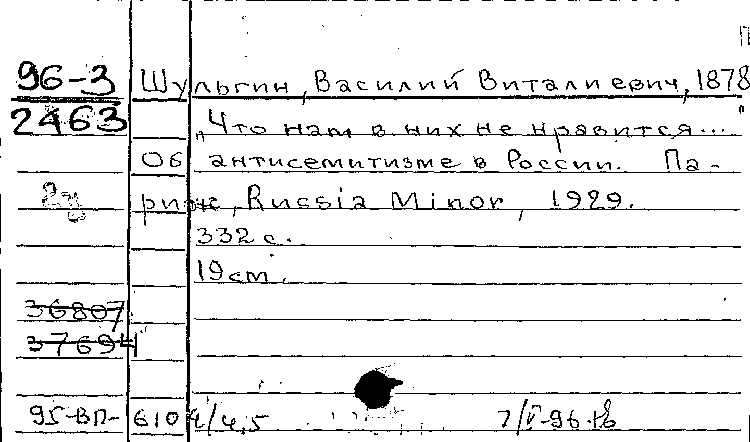 П
96-3 Шульгин, Василий Виталиевич, 1878
2463 „Что нам в них не нравится..."
Об антисемитизме в России. Па-
риж, Russia Minor, 1929.
332 с.
19 см.
36807
37694
95-ВП- 610 4/4,5 7/V-96.